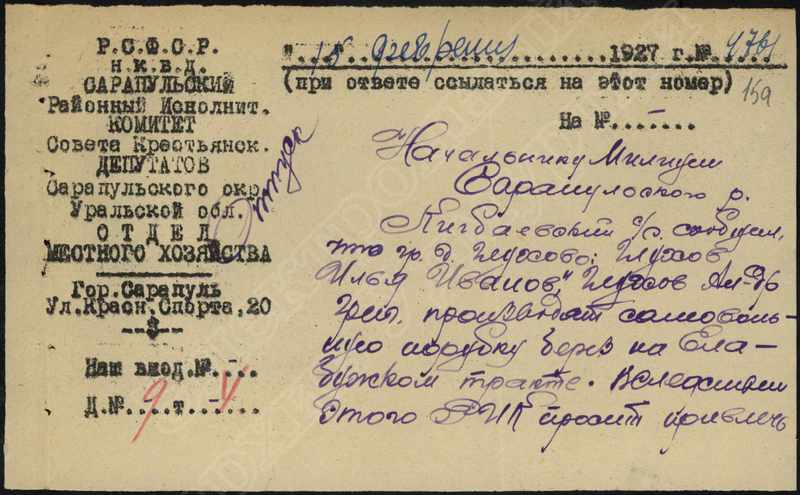 Р.С.Ф.С.Р.
Н.К.В.Д.
САРАПУЛЬСКИЙ
Районный Исполнит.
КОМИТЕТ
Совета Крестьянск.
ДЕПУТАТОВ
Сарапульского окр.
Уральской обл.
ОТДЕЛ
МЕСТНОГО ХОЗЯЙСТВА
Гор. Сарапуль
Ул. Красн. Спорта, 20
Наш вход. №
Д. № 9 т. 4
"15" февраля 1927 г. № 4761
(при ответе ссылаться на этот номер)
159
На №
Отпуск
Начальнику Милиции
Сарапульского р.
Кигбаевский с/с. сообщил,
что гр. д. Глухово: Глухов
Илья Иванов, Глухов Ал-др
Григ. производят самоволь-
ную порубку берез на Ела-
бужском тракте. Вследствии
этого РИК просит привлечь